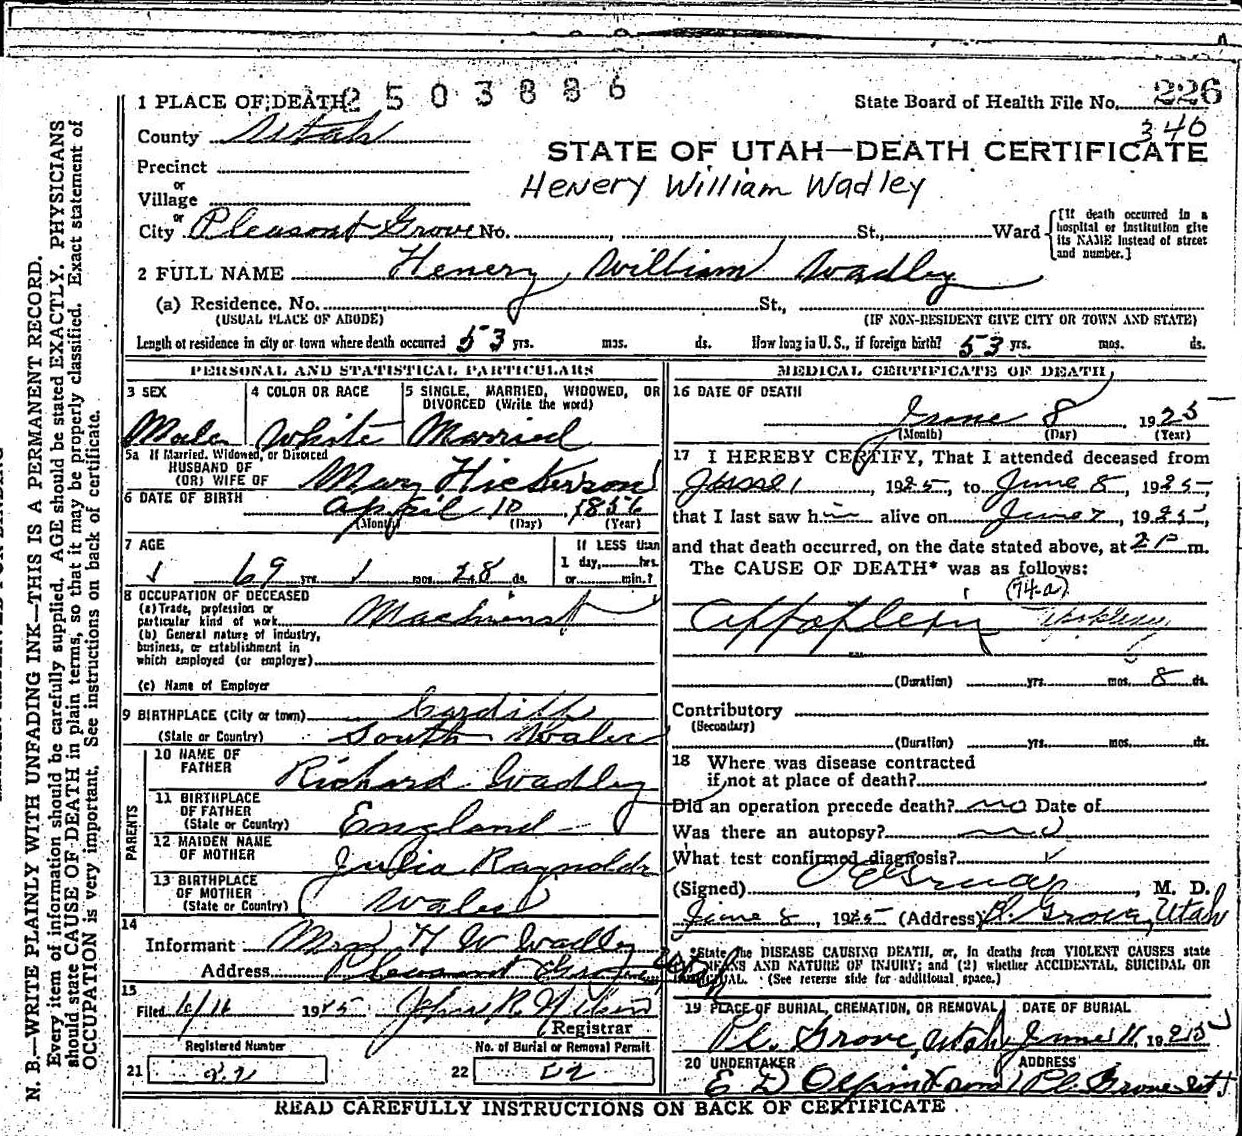 2503886
1 PLACE OF DEATH State Board of Health File No. 226
County Utah 340
STATE OF UTAH—DEATH CERTIFICATE
Precinct
Henery William Wadley
or
Village
or
City Pleasant Grove No. , St., Ward [If death occurred in a hospital or institution give its NAME instead of street and number.]
2 FULL NAME Henery William Wadley
(a) Residence. No. St.,
(USUAL PLACE OF ABODE) (IF NON-RESIDENT GIVE CITY OR TOWN AND STATE)
Length of residence in city or town where death occurred 53 yrs. mos. ds. How long in U. S., if foreign birth? 53 yrs. mos. ds.
PERSONAL AND STATISTICAL PARTICULARS
3 SEX 4 COLOR OR RACE 5 SINGLE, MARRIED, WIDOWED, OR
DIVORCED (Write the word)
Male White Married
5a If Married, Widowed, or Divorced
HUSBAND OF
(OR) WIFE OF Mary Hickerson
6 DATE OF BIRTH April 10 1856
(Month) (Day) (Year)
7 AGE If LESS than
69 yrs. 1 mos. 28 ds. 1 day, hrs.
or min.?
8 OCCUPATION OF DECEASED
(a) Trade, profession or
particular kind of work Machinist
(b) General nature of industry,
business, or establishment in
which employed (or employer)
(c) Name of Employer
9 BIRTHPLACE (City or town) Cardiff
(State or Country) South Wales
PARENTS
10 NAME OF
FATHER Richard Wadley
11 BIRTHPLACE
OF FATHER
(State or Country) England
12 MAIDEN NAME
OF MOTHER Julia Raynolds
13 BIRTHPLACE
OF MOTHER
(State or Country) Wales
14
Informant Mrs H W Wadley
Address Pleasant Grove Utah
15
Filed 6/11 1925
Registrar
Registered Number No. of Burial or Removal Permit
21 22 22
MEDICAL CERTIFICATE OF DEATH
16 DATE OF DEATH
June 8 1925
(Month) (Day) (Year)
17 I HEREBY CERTIFY, That I attended deceased from
June 1, 1925, to June 8, 1925,
that I last saw him alive on June 7, 1925,
and that death occurred, on the date stated above, at 2 P m.
The CAUSE OF DEATH* was as follows:
(74-a)
Appoplexy
(Duration) yrs. mos. 8 ds.
Contributory
(Secondary)
(Duration) yrs. mos. ds.
18 Where was disease contracted
if not at place of death?
Did an operation precede death? no Date of
Was there an autopsy? no
What test confirmed diagnosis?
(Signed) , M. D.
June 8, 1925 (Address) Pl. Grove, Utah
*State the DISEASE CAUSING DEATH, or, in deaths from VIOLENT CAUSES state
MEANS AND NATURE OF INJURY; and (2) whether ACCIDENTAL, SUICIDAL OR
(See reverse side for additional space.)
19 PLACE OF BURIAL, CREMATION, OR REMOVAL DATE OF BURIAL
Pl. Grove, Utah June 11, 1925
20 UNDERTAKER ADDRESS
E D Olpin Pl Grove Ut
READ CAREFULLY INSTRUCTIONS ON BACK OF CERTIFICATE
N. B.—WRITE PLAINLY WITH UNFADING INK—THIS IS A PERMANENT RECORD.
Every item of information should be carefully supplied. AGE should be stated EXACTLY. PHYSICIANS
should state CAUSE OF DEATH in plain terms, so that it may be properly classified. Exact statement of
OCCUPATION is very important. See instructions on back of certificate.